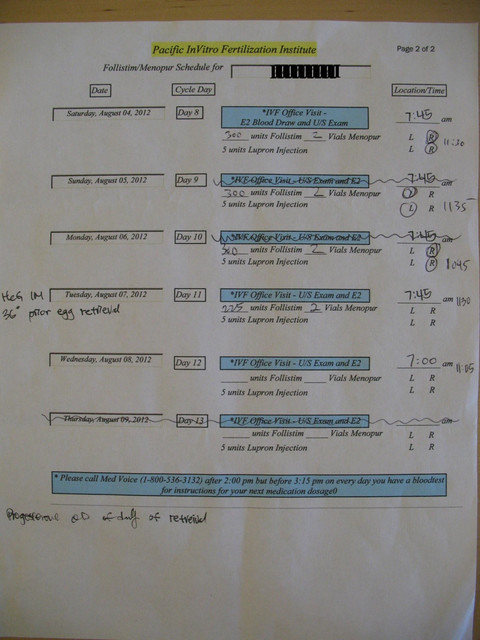 Pacific InVitro Fertilization Institute
Page 2 of 2
Follistim/Menopur Schedule for
Date Cycle Day Location/Time
Saturday, August 04, 2012 Day 8 *IVF Office Visit - 7:45 am
E2 Blood Draw and U/S Exam
300 units Follistim 2 Vials Menopur L R 11:30
5 units Lupron Injection L R
Sunday, August 05, 2012 Day 9 *IVF Office Visit - U/S Exam and E2 7:45 am
300 units Follistim 2 Vials Menopur L R
5 units Lupron Injection L R 1135
Monday, August 06, 2012 Day 10 *IVF Office Visit - U/S Exam and E2 7:45 am
300 units Follistim 2 Vials Menopur L R
5 units Lupron Injection L R 1045
HCG IM Tuesday, August 07, 2012 Day 11 *IVF Office Visit - U/S Exam and E2 7:45 am 1130
36° prior egg retrieval 225 units Follistim 2 Vials Menopur L R
5 units Lupron Injection L R
Wednesday, August 08, 2012 Day 12 *IVF Office Visit - U/S Exam and E2 7:00 am 11:05
units Follistim Vials Menopur L R
5 units Lupron Injection L R
Thursday, August 09, 2012 Day 13 *IVF Office Visit - U/S Exam and E2 am
units Follistim Vials Menopur L R
5 units Lupron Injection L R
* Please call Med Voice (1-800-536-3132) after 2:00 pm but before 3:15 pm on every day you have a bloodtest
for instructions for your next medication dosage0
Progesterone of retrieval